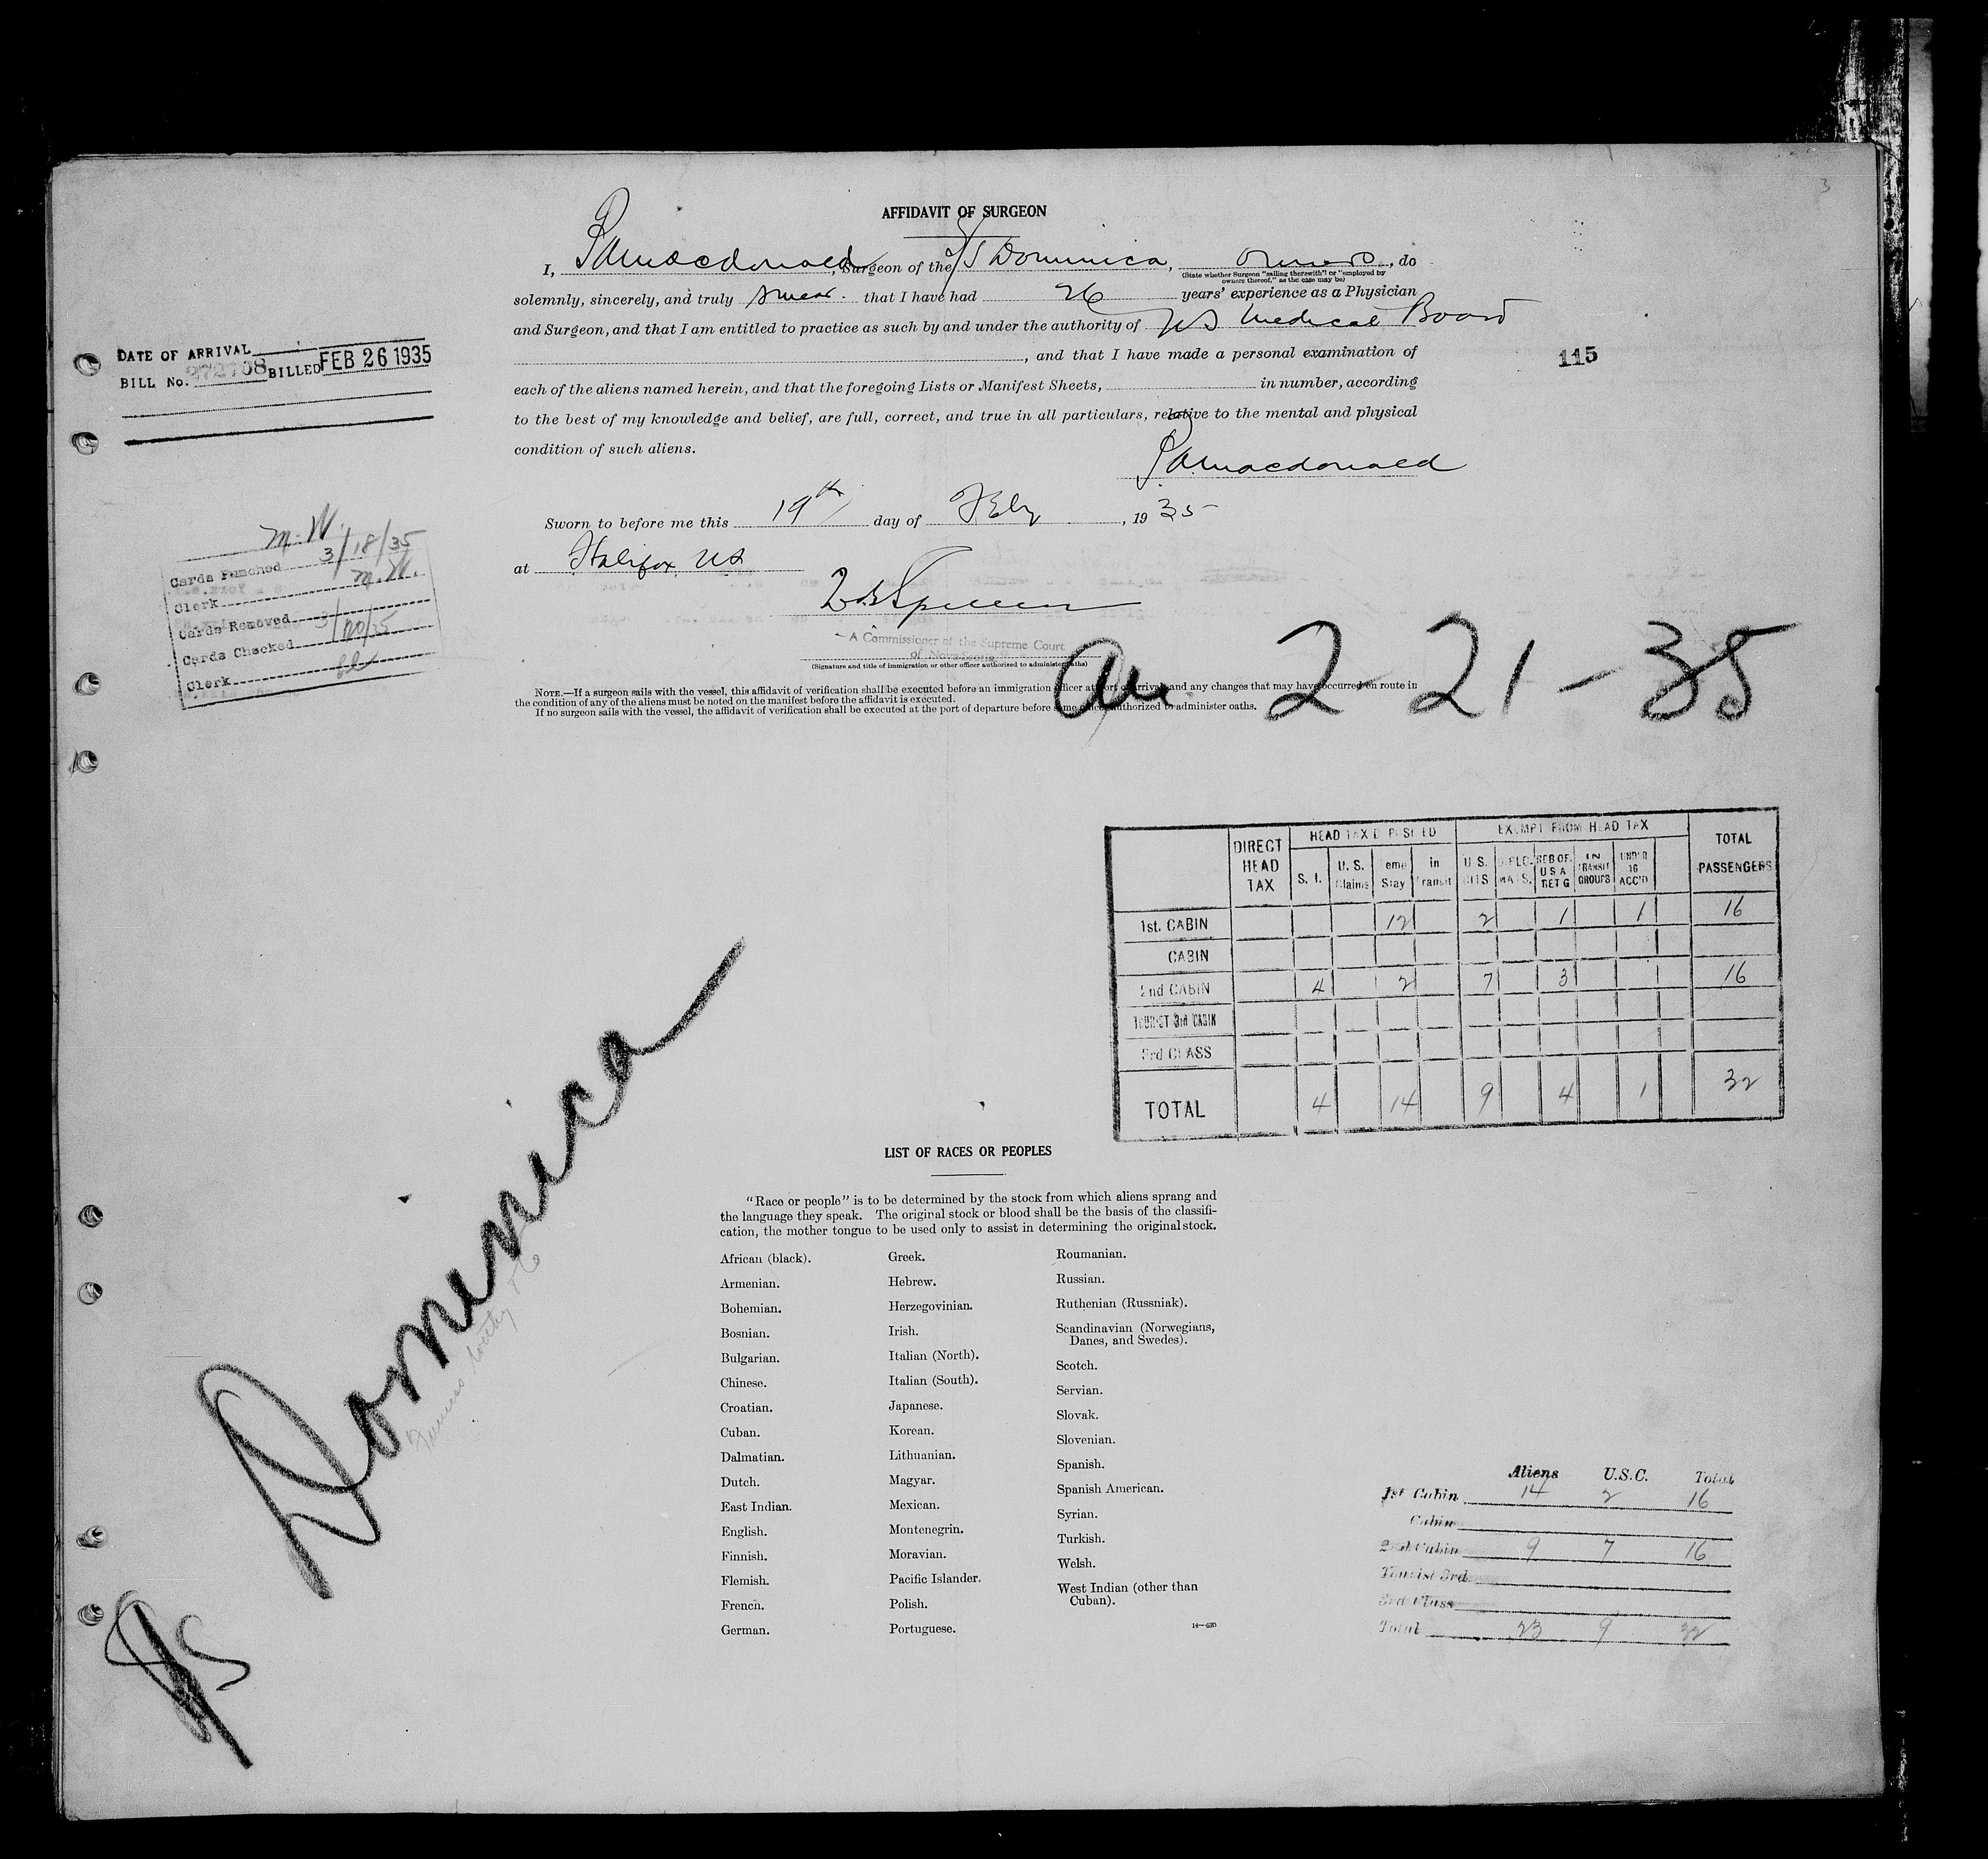 3
AFFIDAVIT OF SURGEON
I, Macdonald, Surgeon of the S/S Dominica, owners, do
(State whether Surgeon "sailing therewith" or "employed by
owners thereof," as the case may be)
solemnly, sincerely, and truly swear. that I have had 26 years' experience as a Physician
and Surgeon, and that I am entitled to practice as such by and under the authority of NS Medical Board
, and that I have made a personal examination of
each of the aliens named herein, and that the foregoing Lists or Manifest Sheets, in number, according
to the best of my knowledge and belief, are full, correct, and true in all particulars, relative to the mental and physical
condition of such aliens.
Macdonald
Sworn to before me this 19th day of Feby, 1935
at Halifax NS
A Commissioner of the Supreme Court
of Nova Scotia
(Signature and title of immigration or other officer authorized to administer oaths)
NOTE.—If a surgeon sails with the vessel, this affidavit of verification shall be executed before an immigration officer at port of arrival, and any changes that may have occurred en route in
the condition of any of the aliens must be noted on the manifest before the affidavit is executed.
If no surgeon sails with the vessel, the affidavit of verification shall be executed at the port of departure before some officer authorized to administer oaths.
DATE OF ARRIVAL
BILL No. 272708 BILLED FEB 26 1935
115
M.W.
Cards Punched 3/18/35
Clerk M.W.
Cards Removed
Cards Checked 3/20/35
Clerk
2-21-35
DIRECT HEAD TAX
HEAD TAX DEPOSITED
EXEMPT FROM HEAD TAX
TOTAL PASSENGERS
S. I. U. S. Claims Temp Stay in Transit U S. CITS DIPLO. MATS. RES OF. U S A RET G IN TRANSIT GROUPS UNDER 16 ACC'D
1st. CABIN 12 2 1 1 16
CABIN
2nd CABIN 4 2 7 3 16
TOURIST 3rd CABIN
3rd CLASS
TOTAL 4 14 9 4 1 32
Dominica
Furness Withy & Co
LIST OF RACES OR PEOPLES
"Race or people" is to be determined by the stock from which aliens sprang and
the language they speak. The original stock or blood shall be the basis of the classifi-
cation, the mother tongue to be used only to assist in determining the original stock.
African (black).
Armenian.
Bohemian.
Bosnian.
Bulgarian.
Chinese.
Croatian.
Cuban.
Dalmatian.
Dutch.
East Indian.
English.
Finnish.
Flemish.
French.
German.
Greek.
Hebrew.
Herzegovinian.
Irish.
Italian (North).
Italian (South).
Japanese.
Korean.
Lithuanian.
Magyar.
Mexican.
Montenegrin.
Moravian.
Pacific Islander.
Polish.
Portuguese.
Roumanian.
Russian.
Ruthenian (Russniak).
Scandinavian (Norwegians,
Danes, and Swedes).
Scotch.
Servian.
Slovak.
Slovenian.
Spanish.
Spanish American.
Syrian.
Turkish.
Welsh.
West Indian (other than
Cuban).
14—430
Aliens U.S.C. Total
1st Cabin 14 2 16
Cabin
2nd Cabin 9 7 16
Tourist 3rd
3rd Class
Total 23 9 32